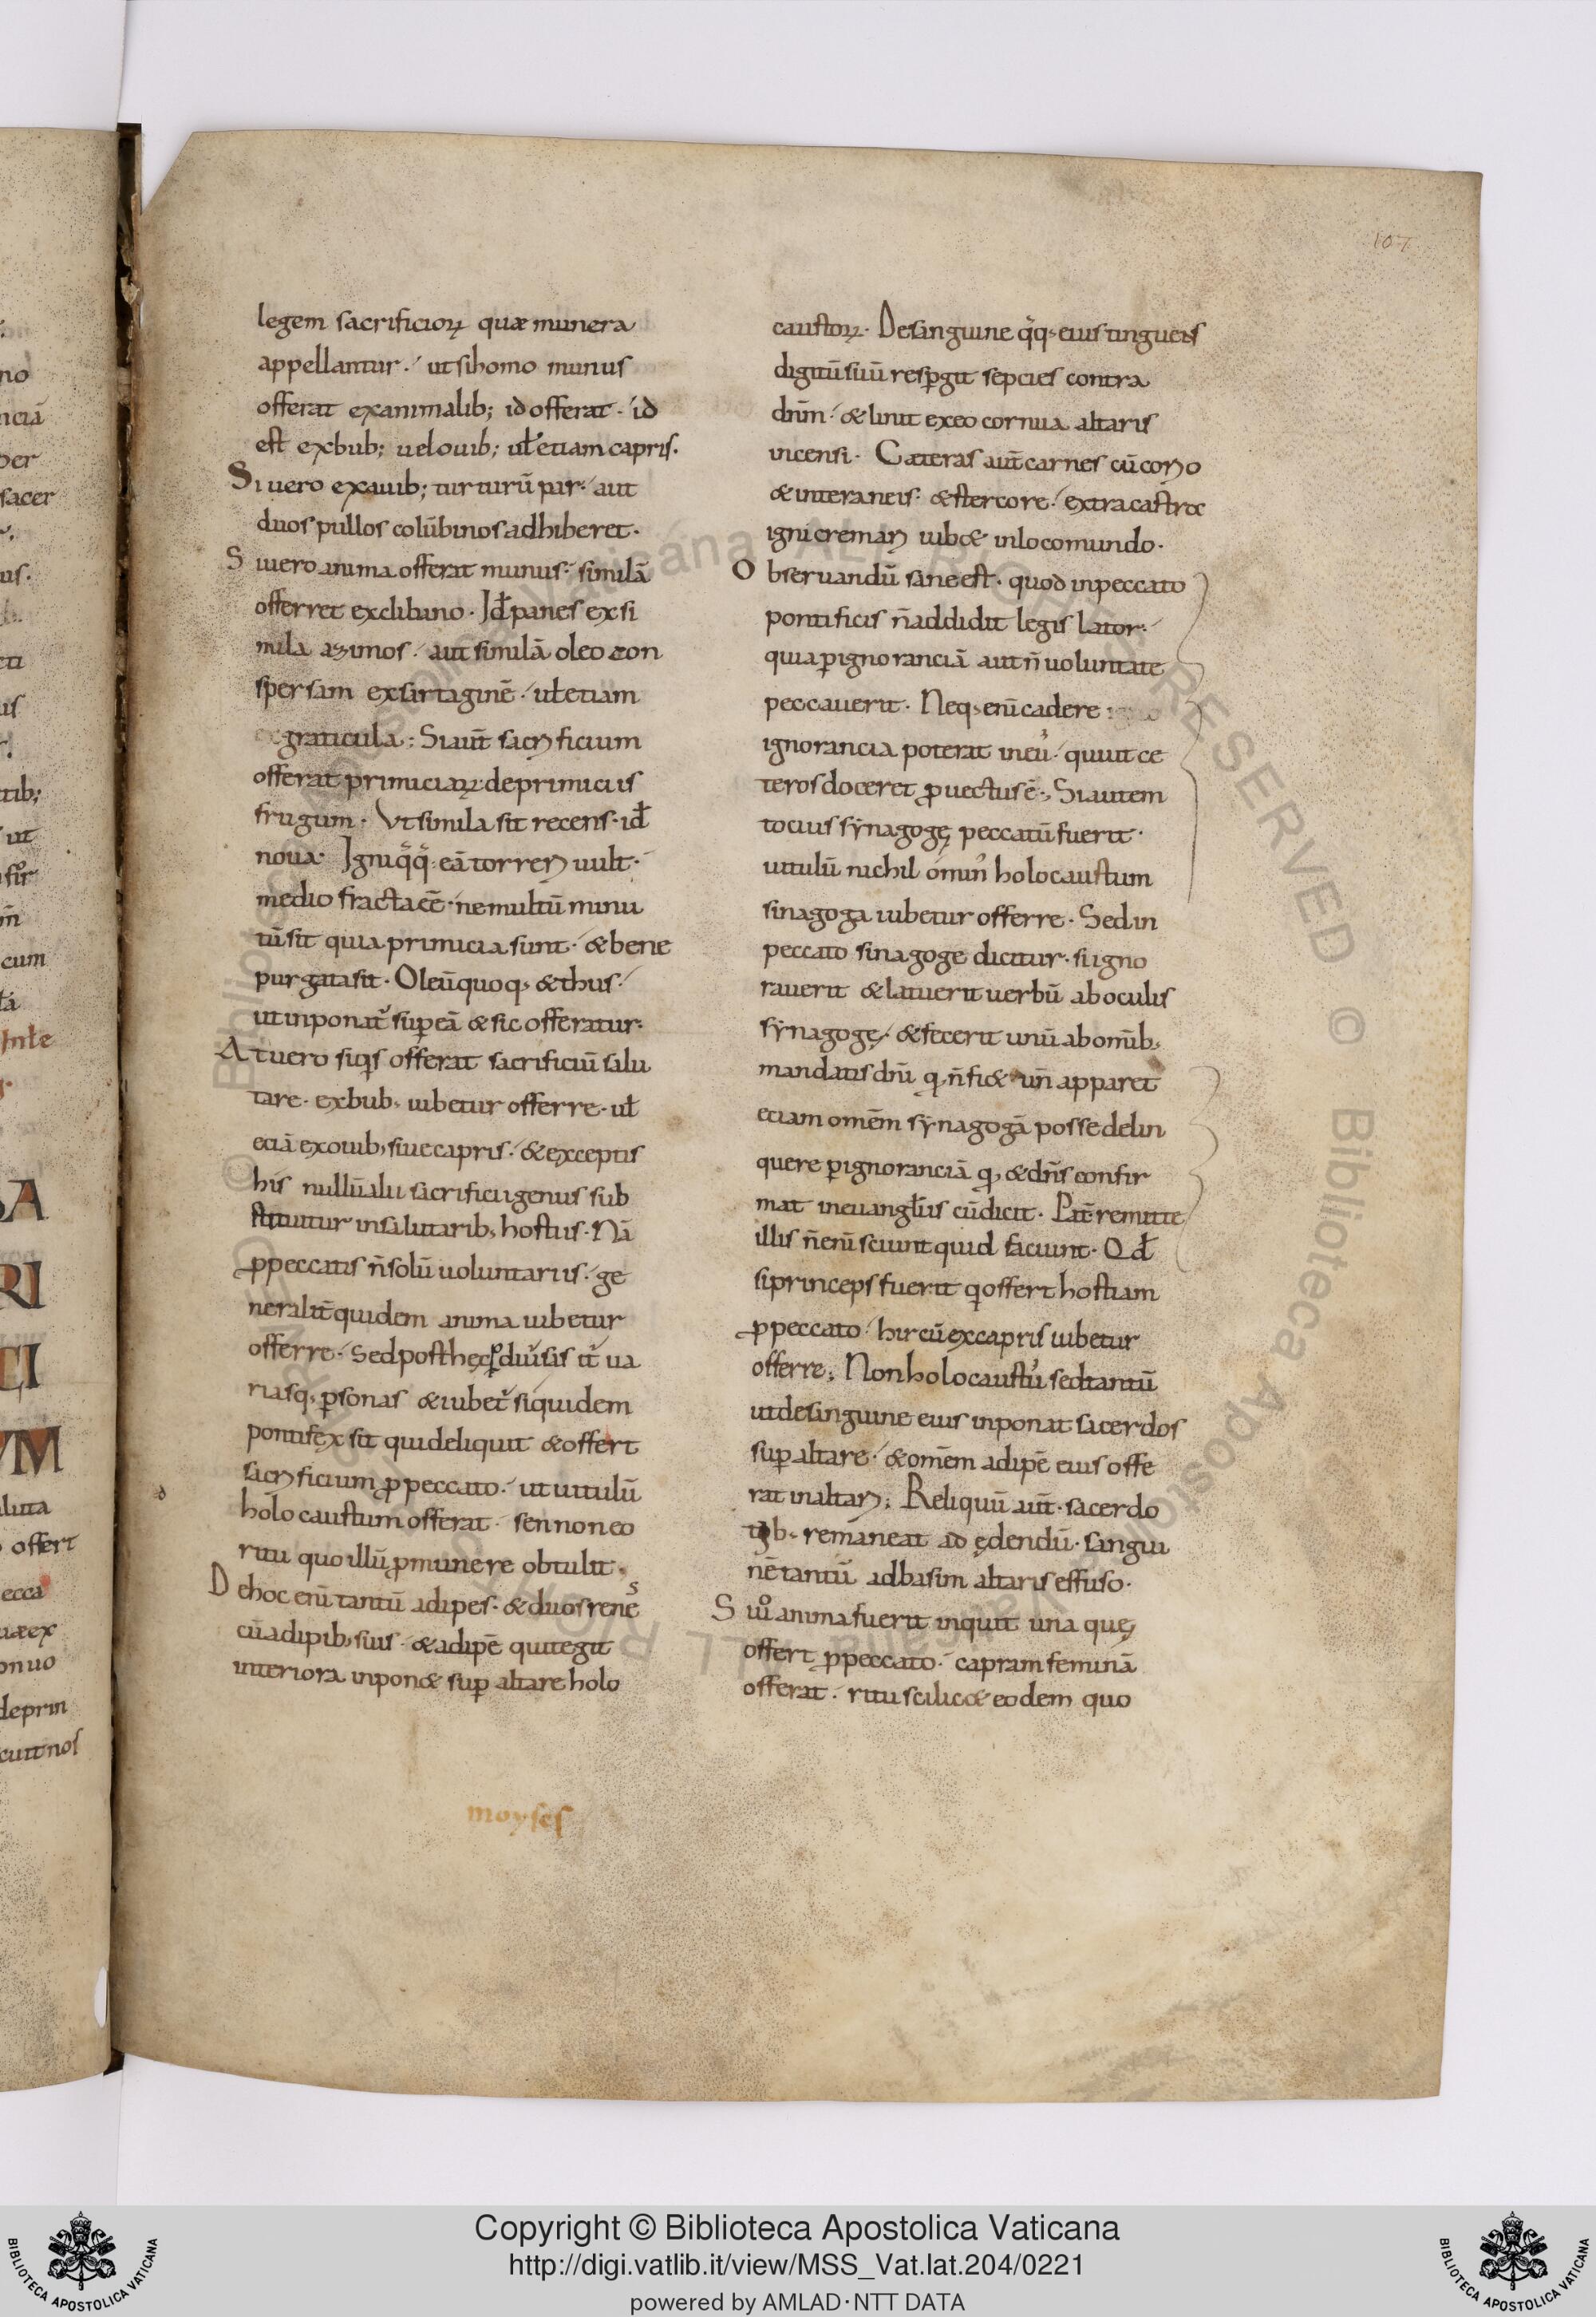 107
legem sacrificioꝝ quæ munera
appellantur · ut si homo munus
offerat ex animalib; id offerat · id
est ex bub; uel ouib; uł etiam capris.
Si uero ex auib; turturū par · aut
duos pullos colūbinos adhiberet ·
Si uero anima offerat munus · similā
offerret ex clibano · Id̄ panes ex si
mila azimos · aut similā oleo con
spersam ex sartaginē · uł etiam
ex graticula; Si aut̄ sacrificium
offerat primiciaꝝ de primiciis
frugum · Vt simila sit recens · id̄
noua · Igni q̄q̄ eā torreri uult ·
medio fracta eē · ne multū minu
tū sit quia primicia sunt · & bene
purgata sit · Oleū quoq, & thus ·
ut inponat᷑ sup̱ eā & sic offeratur ·
At uero siq̱s offerat sacrificiū salu
tare · ex bub, iubetur offerre · uł
eciā ex ouib, siue capris · & exceptis
his nullū alii sacrificii genus sub
stituitur in salutarib, hostiis · Nā
ꝓ peccatis n̄ solū uoluntariis · ge
neralit̄ quidem anima iubetur
offerre · Sed post hęc ꝑ diuisis it᷑ ua
riasq, ꝑsonas & iubet᷑ siquidem
pontifex sit qui deliquit & offert
sacrificium ꝓ peccato · ut uitulū
holocaustum offerat · sen non eo
ritu quo illū ꝓ munere obtulit ·
De hoc eni tantū adipes · & duos renes
cū adipib, suis · & adipē qui tegit
interiora inpon& sup̱ altare holo
moyses
caustoꝝ · De sanguine q̄q, eius tinguens
digitū suū resꝑgit sepcies contra
dn̄m · & linit ex eo cornua altaris
incensi · Cæteras aut̄ carnes cū corio
& interaneis · & stercore · extra castra
igni cremari iub& in loco mundo ·
Obseruandū sane est · quod in peccato
pontificis n̄ addidit legis lator ·
quia ꝑ ignoranciā aut n̄ uoluntate
peccauerit · Neq, eni cadere
ignorancia poterat in eū · qui ut ce
teros doceret ꝓuectus ē; Si autem
tocius synagogę peccatū fuerit ·
uitulū nichil ominꝰ holocaustum
sinagoga iubetur offerre · Sed in
peccato sinagoge dicitur · si igno
rauerit & latuerit uerbū ab oculis
synagogę · & fecerit unū ab omīb,
mandatis dn̄i q, n̄ fi& un̄ apparet
eciam omēm synagogā posse delin
quere ꝑ ignoranciā q, & dn̄s confir
mat in euangl̄iis cū dicit · Pat̄ remitte
illis n̄ eni sciunt quid faciunt · Qd̄
si princeps fuerit q̱ offert hostiam
ꝓ peccato · hircū ex capris iubetur
offerre; Non holocaustū sed tantū
ut de sanguine eius inponat sacerdos
sup̱ altare · & omēm adipē eius offe
rat in altari; Reliquū aut̄ · sacerdo
tib, remaneat ad ędendū · sangui
nē tantū ad basim altaris effuso ·
Si uº anima fuerit inquit una quę
offert ꝓ peccato · capram feminā
offerat · ritu scilic& eodem quo
no
nciā
per
sacer
us.
eti
us
tib;
ut
cum
Inte
SA
RI
CI
VM
aluta
offert
ecca
uæ ex
onuo
deprin
cutt nos
Copyright © Biblioteca Apostolica Vaticana
http://digi.vatlib.it/view/MSS_Vat.lat.204/0221
powered by AMLAD·NTT DATA
BIBLIOTECA APOSTOLICA VATICANA
BIBLIOTECA APOSTOLICA VATICANA